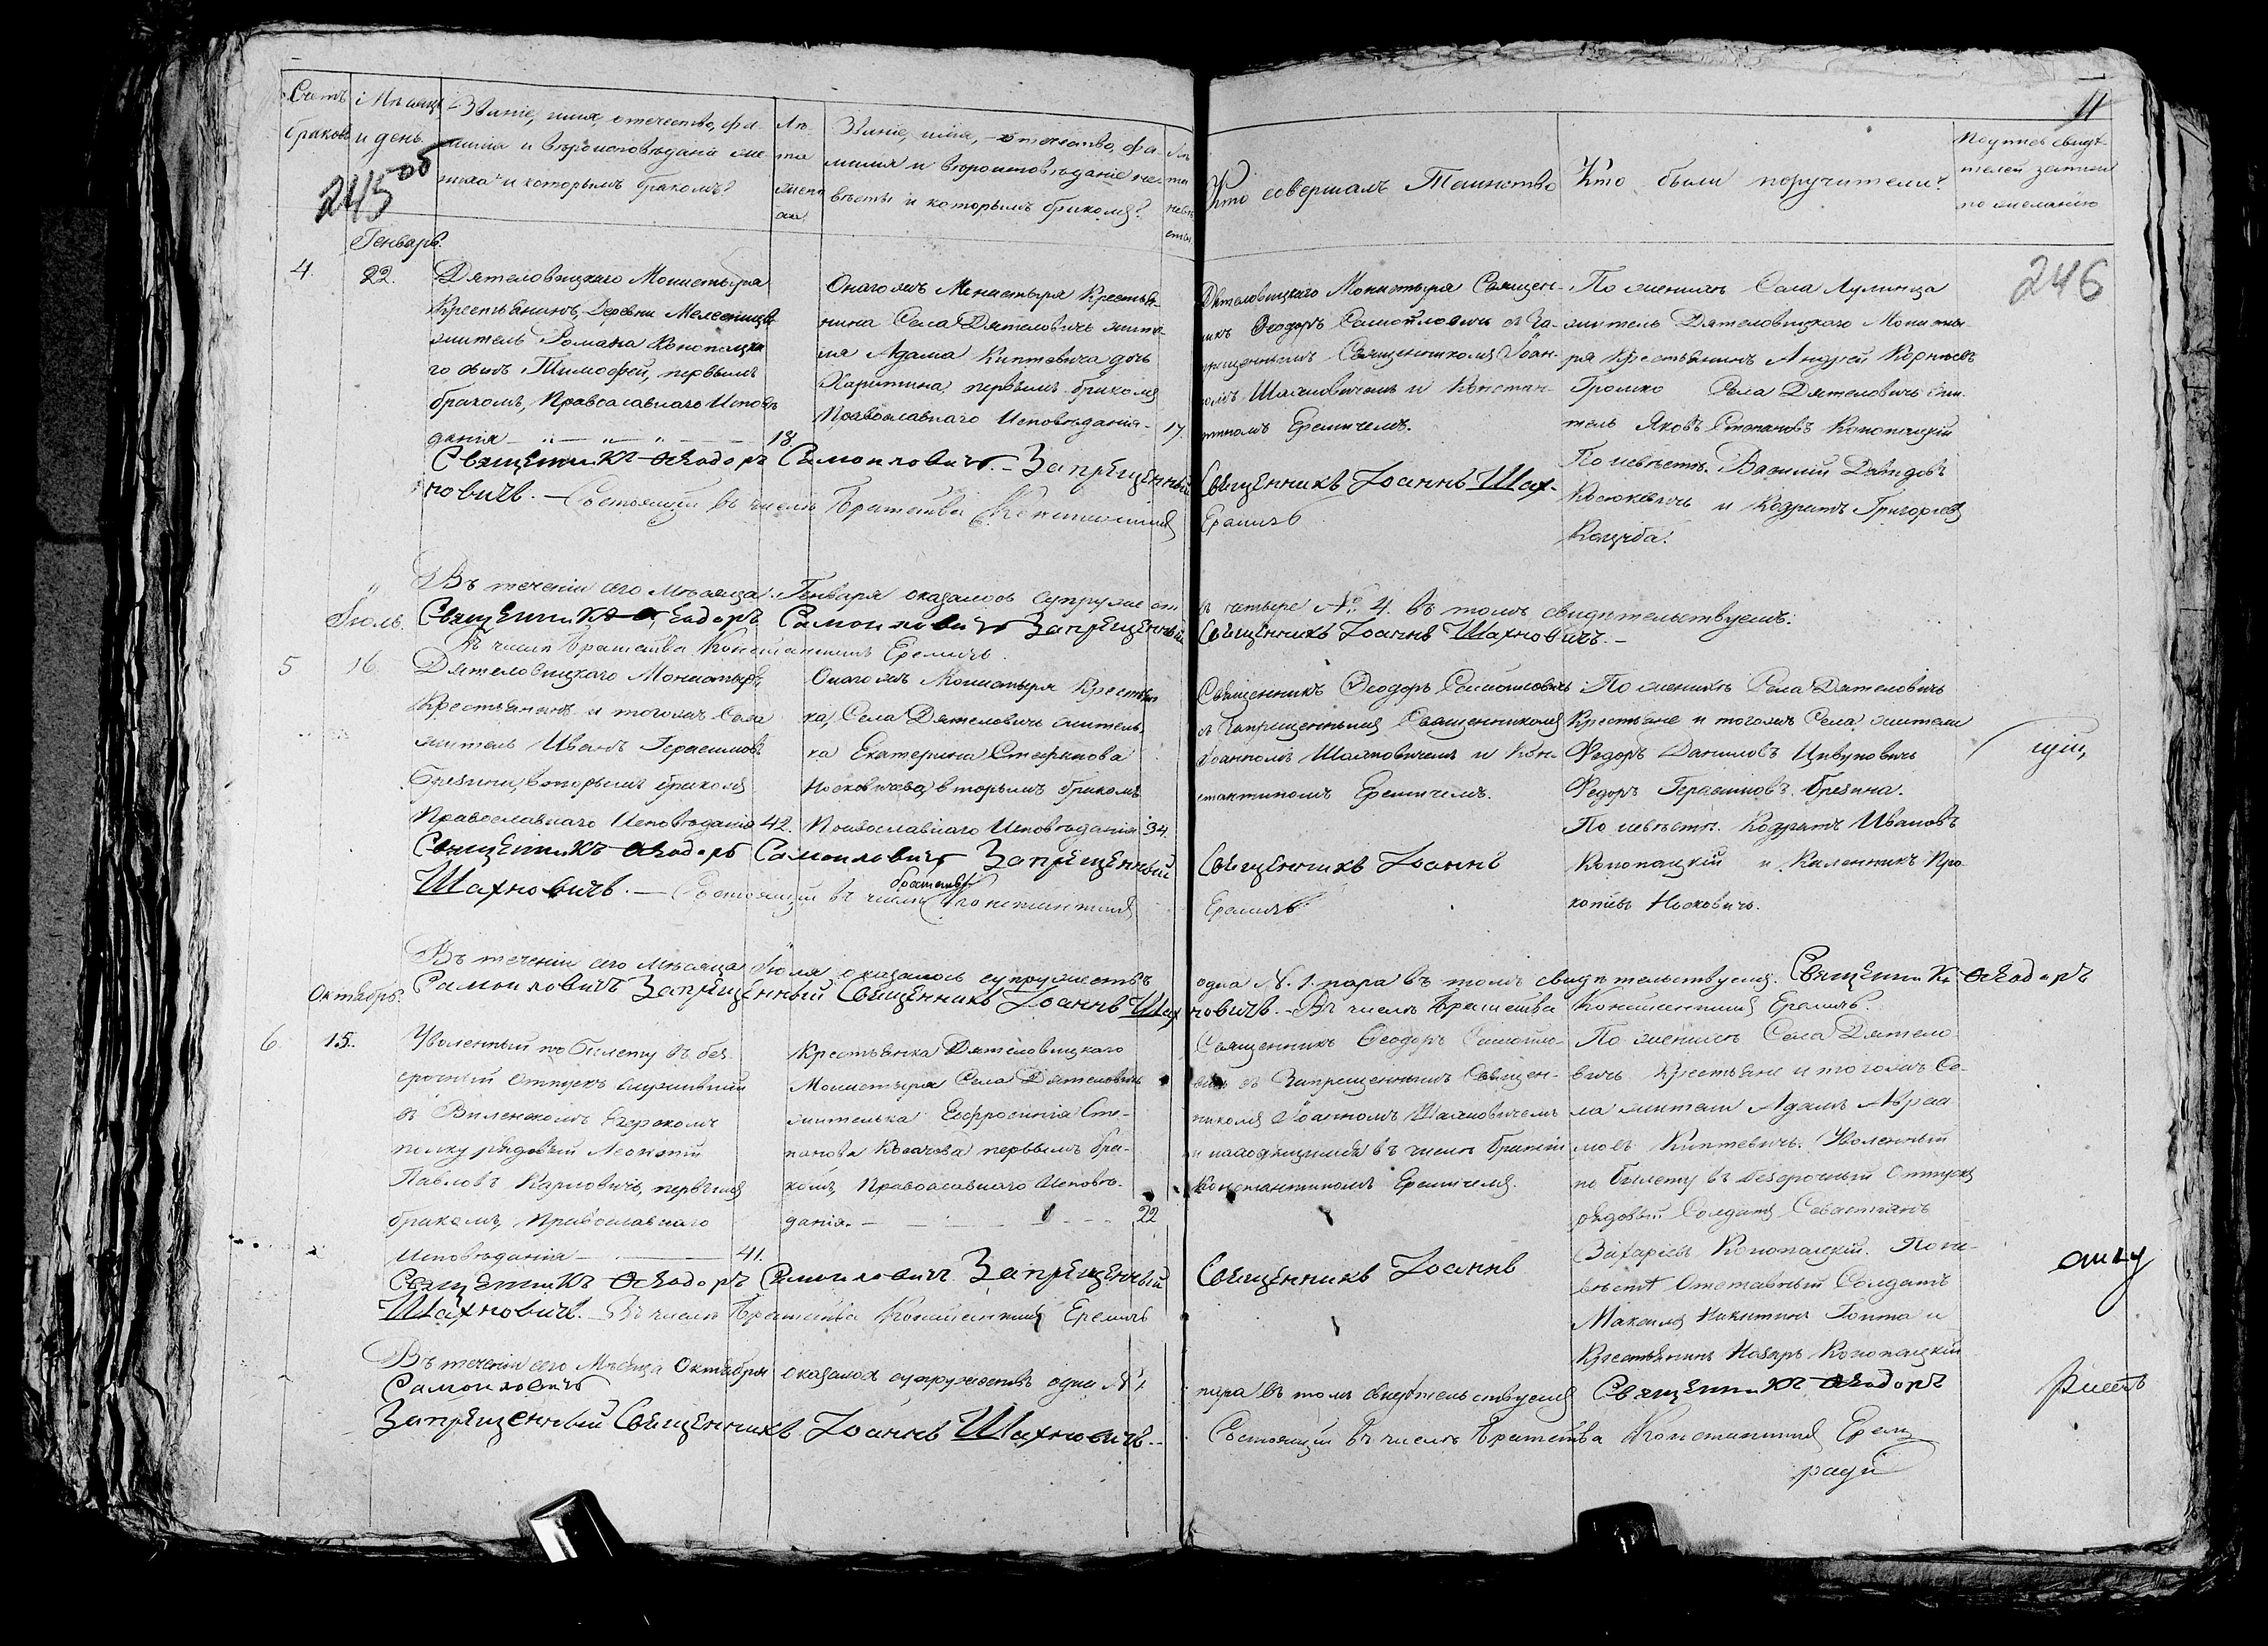 Счетъ браковъ
Мѣсяцъ и день
Званіе, имя, отечество, фамилія и вѣроисповѣданіе жениха и которымъ бракомъ?
Лѣта жениха
Званіе, имя, отечество, фамилія и вѣроисповѣданіе невѣсты и которымъ бракомъ?
Лѣта невѣсты
Кто совершалъ Таинство
Кто были поручители?
Подпись свидѣтелей записи по желанію
11
245 об
246
Генварь.
4.
22.
Дятеловицкаго Монастыря
Крестьянинъ, Деревни
житель Романа Конопацка
го сынъ Тимофей, первымъ
бракомъ, Православнаго Исповѣ
данія
18.
Онаго жъ Монастыря Крестья-
нина Села Дятеловичъ жите
ля Адама Киптевича дочь
Харитина, первымъ бракомъ
Православнаго Исповѣданія.
17.
Дятеловицкаго Монастыря Священ-
никъ Ѳеодоръ Самойловичъ съ За-
прещеннымъ Священникомъ Іоан-
номъ Шахновичемъ и Констан-
тиномъ Еремичемъ.
По женихѣ Села Лулинца
житель Дятеловицкаго Монасты-
ря Крестьянинъ Андрей Корнѣевъ
Громко Села Дятеловичъ жи-
тель Яковъ Степановъ Конопацкій
По невѣстѣ. Василій Давидовъ
Косюкевичъ и Кодратъ Григорьевъ
Священникъ Ѳеодоръ Самойловичъ. Запрещенный Священникъ Іоаннъ Шах-
новичъ. — Состоящій въ числѣ Братства Константинъ Еремичъ
Въ теченіи сего Мѣсяца Генваря оказалось супружествъ четыре № 4. въ томъ свидѣтельствуемъ.
Священникъ Ѳеодоръ Самойловичъ Запрещенный Священникъ Іоаннъ Шахновичъ. —
Въ числѣ Братства Константинъ Еремичъ.
Іюль.
5
16.
Дятеловицкаго Монастыря
Крестьянинъ и тогожъ Села
житель Иванъ Герасимовъ
Брезина, вторымъ бракомъ
Православнаго Исповѣданія
42.
Онаго жъ Монастыря Крестьян
ка, Села Дятеловичъ житель
ка Екатерина Стефанова
Носковичева, вторымъ бракомъ
Православнаго Исповѣданія
34.
Священникъ Ѳеодоръ Самойловичъ
съ Запрещеннымъ Священникомъ
Іоанномъ Шахновичемъ и Кон-
стантиномъ Еремичемъ.
По женихѣ Села Дятеловичъ
Крестьяне и тогожъ Села жители
Федоръ Даниловъ Цивуновичъ
Федоръ Герасимовъ Брезина.
По невѣстѣ. Кодратъ Ивановъ
Конопацкій и Каленникъ Про
копіевъ Носковичъ.
Священникъ Ѳеодоръ Самойловичъ Запрещенный Священникъ Іоаннъ
Шахновичъ. — Состоящій въ числѣ братства Константинъ Еремичъ.
Въ теченіи сего Мѣсяца Іюля оказалось супружествъ одна № 1. пара въ томъ свидѣтельствуемъ. Священникъ Ѳеодоръ
Самойловичъ Запрещенный Священникъ Іоаннъ Шахновичъ. — Въ числѣ Братства Константинъ Еремичъ.
Октябрь.
6.
15.
Уволенный по билету въ без-
срочный отпускъ служившій
въ Виленскомъ Егерскомъ
полку рядовый Леонтій
Павловъ Карловичъ, первымъ
бракомъ, Православнаго
Исповѣданія
41.
Крестьянка Дятеловицкаго
Монастыря Села Дятеловичъ
жителька Евфросинія Сте-
панова Косачова первымъ бра-
комъ, Православнаго Исповѣ-
данія.
22
Священникъ Ѳеодоръ Самойло-
вичъ съ Запрещеннымъ Священ-
никомъ Іоанномъ Шахновичемъ
и находящимся въ числѣ братіи
Константиномъ Еремичемъ.
По женихѣ Села Дятело
вичъ Крестьяне и тогожъ Се-
ла жители Адамъ Авраа
мовъ Киптевичъ. Уволенный
по билету въ безсрочный отпускъ
рядовый Солдатъ Севастіанъ
Захаріевъ Конопацкій. По не-
вѣстѣ Отставный Солдатъ
Максимъ Никитинъ Гопта и
Крестьянинъ Назаръ Конопацкій
Священникъ Ѳеодоръ Самойловичъ Запрещенный Священникъ Іоаннъ
Шахновичъ. — Въ числѣ Братства Константинъ Еремичъ
Въ теченіи сего Мѣсяца Октября оказалось супружествъ одна № 1 пара въ томъ свидѣтельствуемъ Священникъ Ѳеодоръ
Самойловичъ
Запрещенный Священникъ Іоаннъ Шахновичъ. —
Состоящій въ числѣ Братства Константинъ Ерем